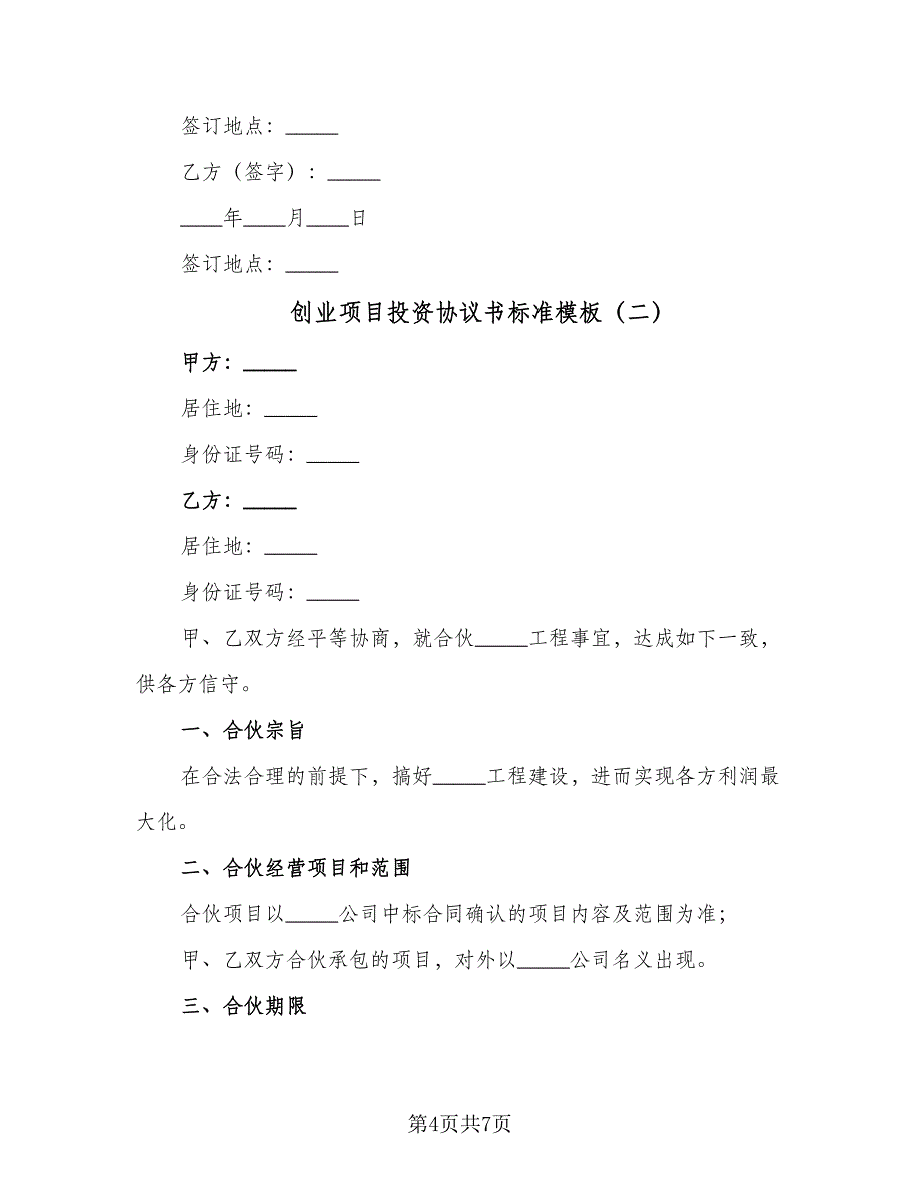 签订地点：_____
乙方（签字）：_____
____年____月____日
签订地点：_____
创业项目投资协议书标准模板（二）
甲方：_____
居住地：_____
身份证号码：_____
乙方：_____
居住地：_____
身份证号码：_____
甲、乙双方经平等协商，就合伙_____工程事宜，达成如下一致，
供各方信守。
一、合伙宗旨
在合法合理的前提下，搞好_____工程建设，进而实现各方利润最
大化。
二、合伙经营项目和范围
合伙项目以_____公司中标合同确认的项目内容及范围为准；
甲、乙双方合伙承包的项目，对外以_____公司名义出现。
三、合伙期限
第4页共7页